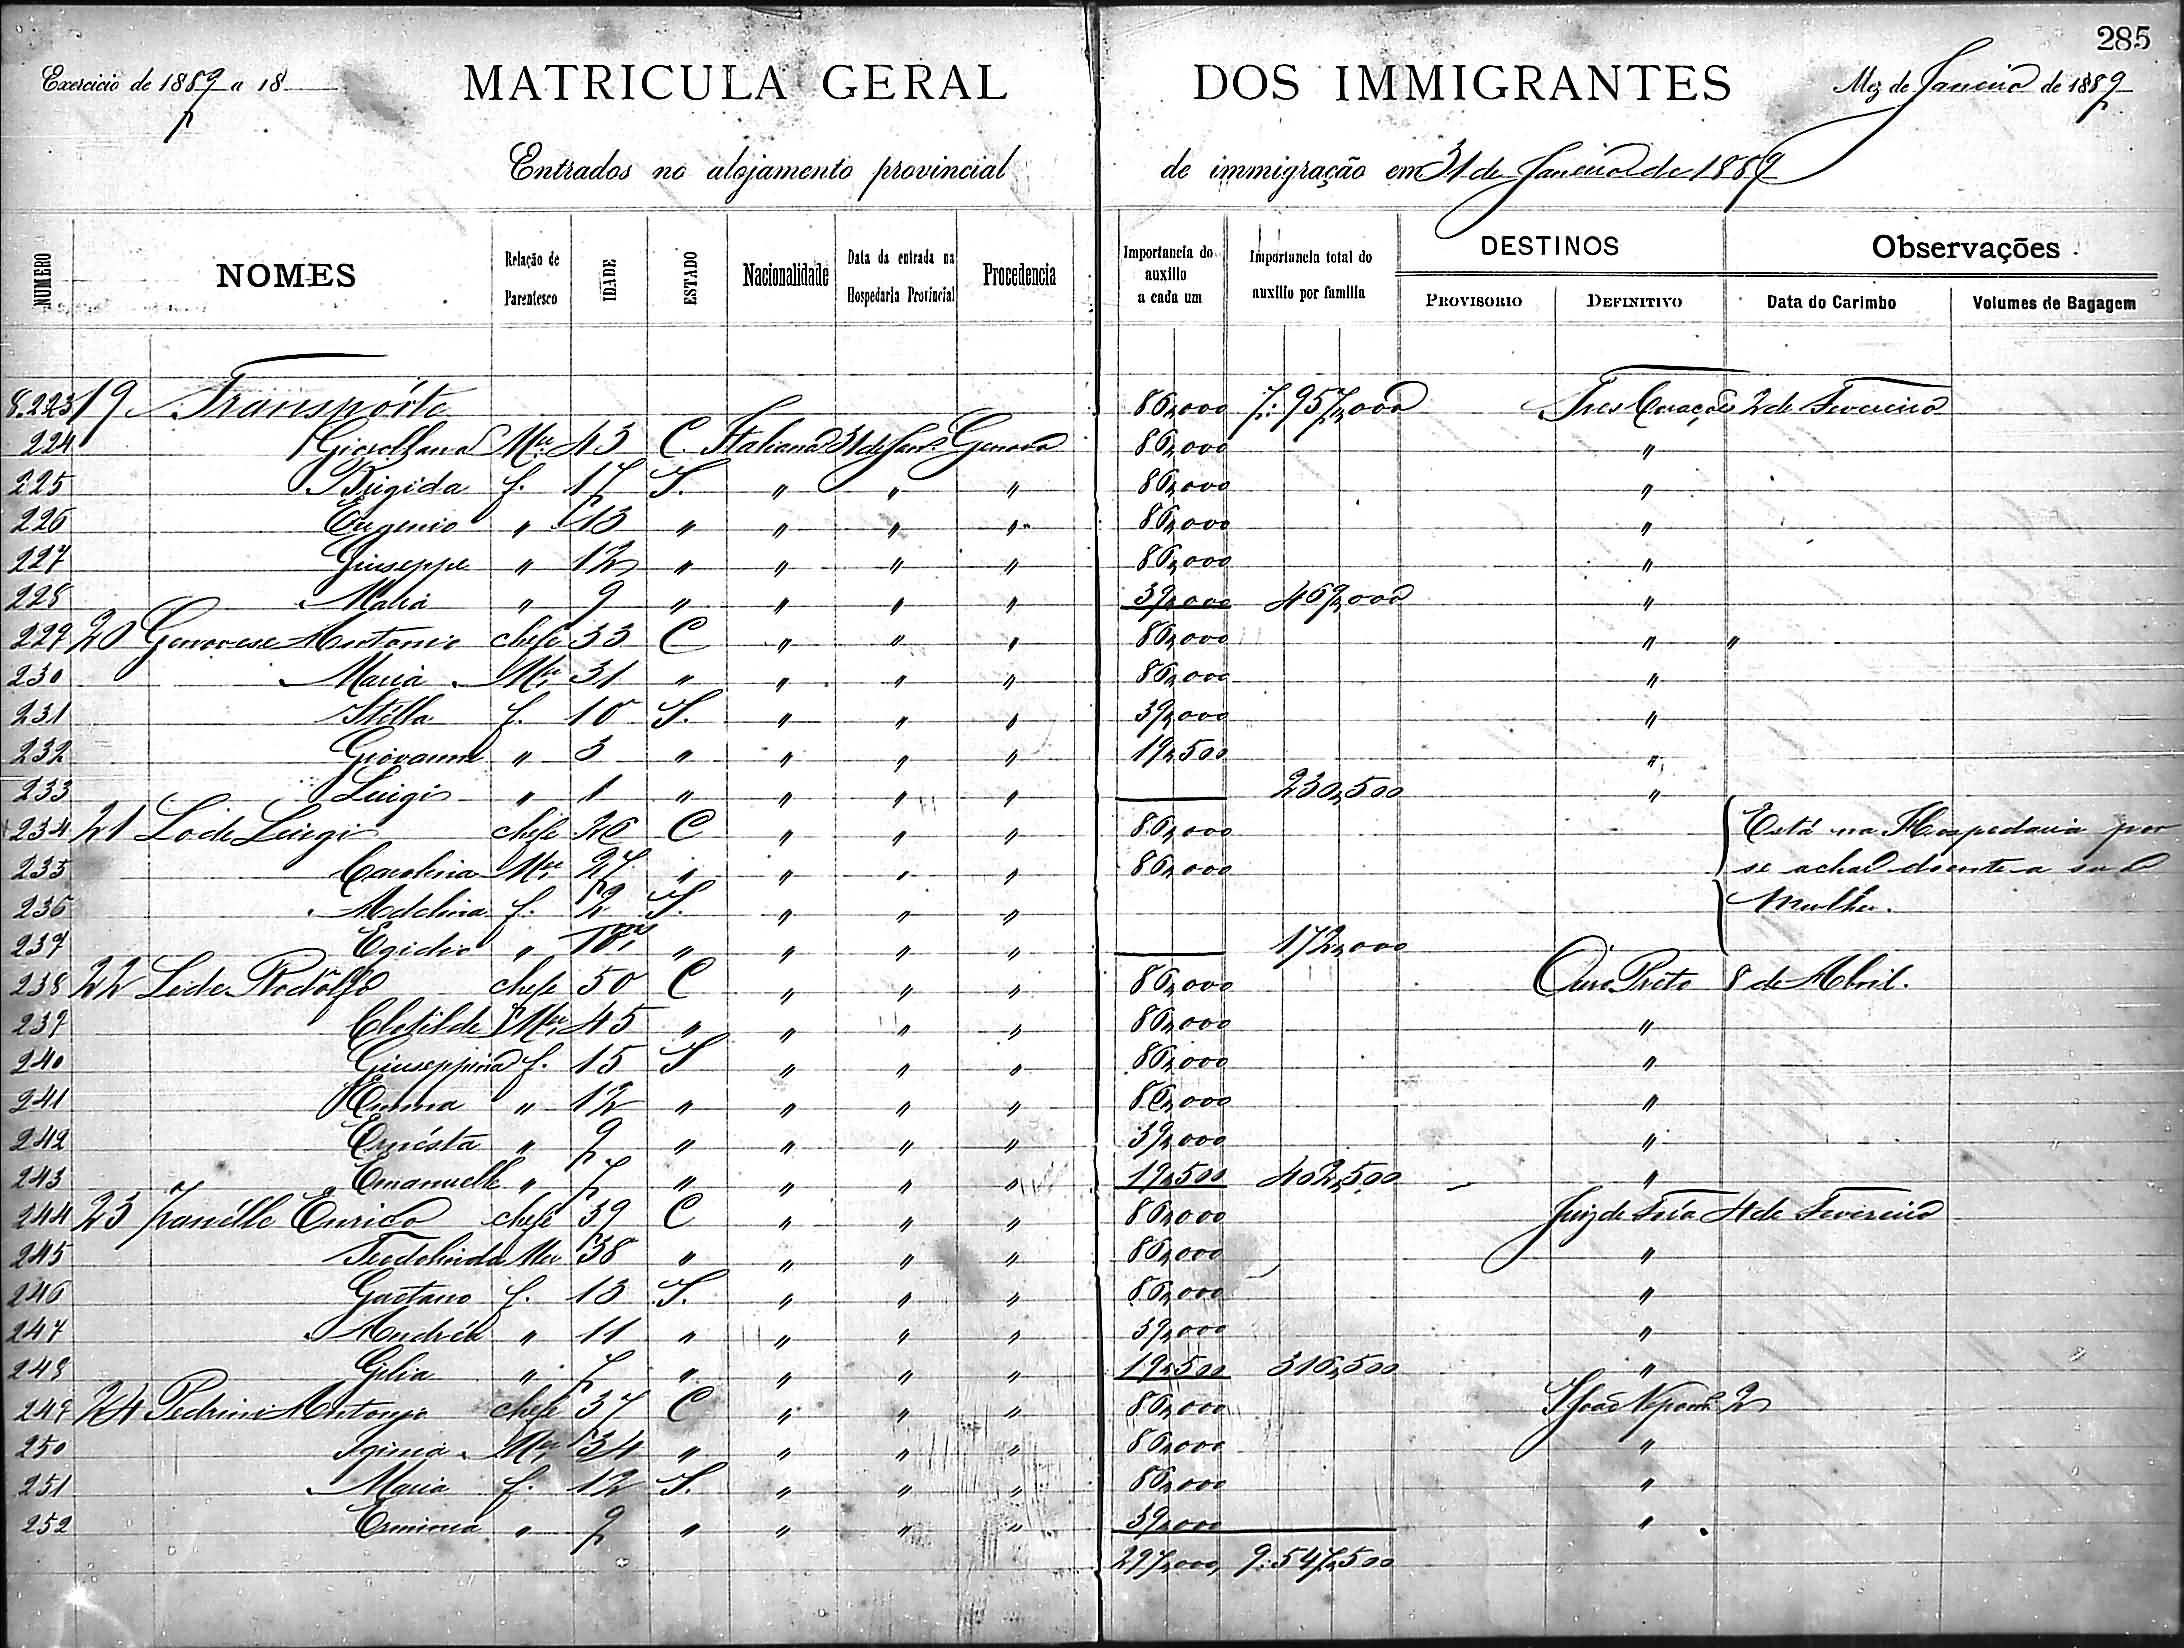 285
Exercicio de 1889 a 18
MATRICULA GERAL DOS IMMIGRANTES
Mez de Janeiro de 1889
Entrados no alojamento provincial de immigração em 31 de Janeiro de 1889
NUMERO NOMES Relação de Parentesco IDADE ESTADO Nacionalidade Data da entrada na Hospedaria Provincial Procedencia Importancia do auxilio a cada um Importancia total do auxilio por familia DESTINOS PROVISORIO DEFINITIVO Observações Data do Carimbo Volumes de Bagagem
8.223 19 Transpórte 86,000 7:957,000 Tres Corações 2 de Fevereiro
224 Mer 43 C. Italiana 31 de Janº Genova 86,000 "
225 Brigida f. 17 S. " " " 86,000 "
226 Eugenio " 13 " " " " 86,000 "
227 Giuseppe " 12 " " " " 86,000 "
228 Maria " 9 " " " " 39,000 469,000 "
229 20 Genovese Antonio chefe 33 C " " " 86,000 " "
230 Maria Mer 31 " " " " 86,000 "
231 Stélla f. 10 S. " " " 39,000 "
232 Giovanni " 3 " " " " 19,500 "
233 Luigi " 1 " " " " 230,500 "
234 21 Lodi Luigi chefe 26 C " " " 86,000 Está na Hospedaria por
235 Carolina Mer 27 " " " " 86,000 se achar doente a sua
236 Adelina f. 2 S. " " " Mulher.
237 Egidio " 10 m " " " " 172,000
238 22 Lide Rodólfo chefe 50 C " " " 86,000 Ouro Preto 8 de Abril.
239 Clotilde Mer 45 " " " " 86,000 "
240 Giuseppina f. 15 S " " " 86,000 "
241 Emma " 12 " " " " 86,000 "
242 Ernésta " 9 " " " " 39,000 "
243 Emanuelle " 7 " " " " 19,500 402,500 "
244 23 Zanélle Enrico chefe 39 C " " " 86,000 Juiz de Fóra 4 de Fevereiro
245 Teodolinda Mer 38 " " " " 86,000 "
246 Gaetano f. 13 S. " " " 86,000 "
247 Andréa " 11 " " " " 39,000 "
248 Gilia " 7 " " " " 19,500 316,500 "
249 24 Pedrini Antonio chefe 37 C " " " 86,000 S João Nepom. 2
250 Iginia Mer 34 " " " " 86,000 "
251 Maria f. 12 S. " " " 86,000 "
252 Erminia " 9 " " " " 39,000 "
297,000 9:547,500